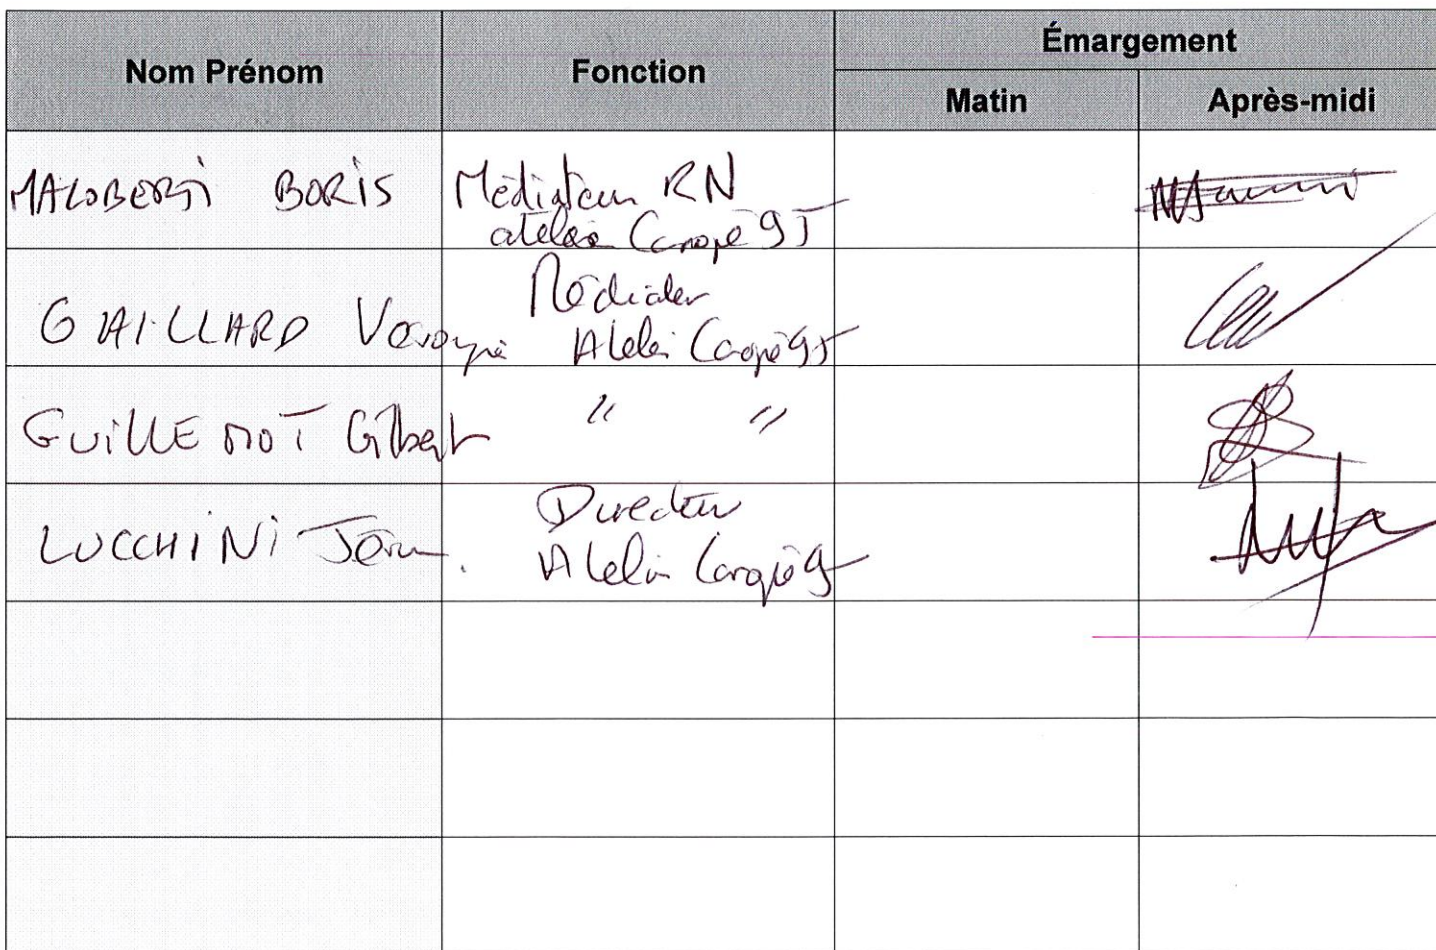 Nom Prénom
Fonction
Émargement
Matin
Après-midi
MALOBERTI BORIS
Médiateur RN
atelier Canopé 95
GAILLARD Véronique
Médiateur
Atelier Canopé 95
GUILLEMOT Gilbert
" "
LUCCHINI
Directeur
Atelier Canopé 95